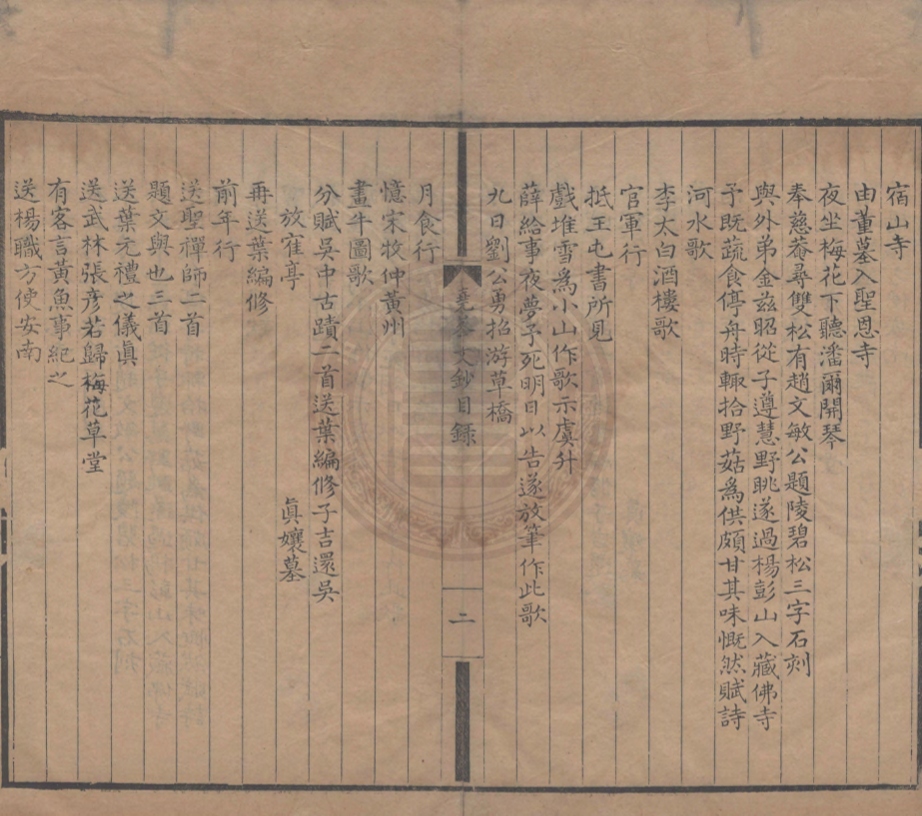 宿山寺
由董墓入聖恩寺
夜坐梅花下聽潘爾開琴
奉慈菴尋雙松有趙文敏公題陵碧松三字石刻
與外弟金兹昭從子遵慧野眺遂過楊彭山入藏佛寺
予既蔬食停舟時輙拾野菇爲供頗甘其味慨然賦詩
河水歌
李太白酒樓歌
官軍行
抵王屯書所見
戲堆雪爲小山作歌示虞升
薛給事夜夢予死明日以告遂放筆作此歌
九日劉公勇招游草橋
堯峯文鈔目録
二
月食行
憶宋牧仲黄州
畫牛圖歌
分賦吳中古蹟二首送葉編修子吉還吳
放寉亭 眞孃墓
再送葉編修
前年行
送聖禪師二首
題文與也三首
送葉元禮之儀眞
送武林張彦若歸梅花草堂
有客言黃魚事紀之
送楊職方使安南